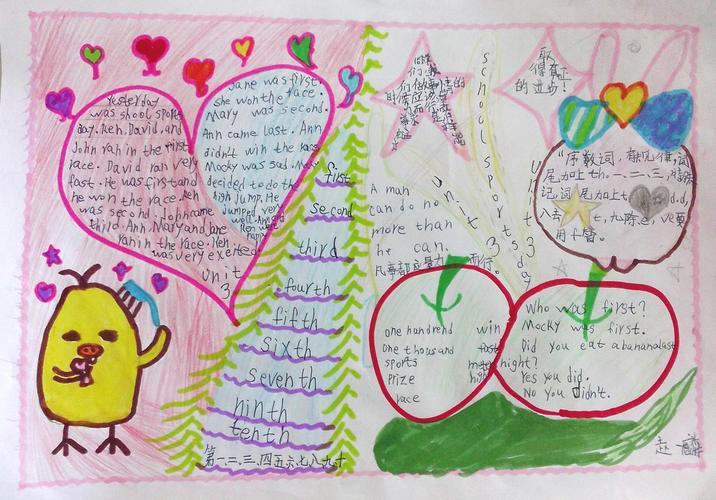 Yesterday
was shool sports
day. Ken, David and
John ran in the first
race. David ran very
fast. He was first and
he won the race. Ken
was second. John came
third. Ann, Mary and Jane
ran in the race. Ken
was very excited
Unit
3
Jane was first.
she won the race.
Mary was second.
Ann came last. Ann
didn't win the race.
Mocky was sad. Mocky
decided to do the
high jump. He
Jumped very
well. Ann and
Ken were
happy
first
second
third
fourth
fifth
sixth
seventh
ninth
tenth
第一、二、三、四、五、六、七、八、九、十
school sports day
Unit 3
Unit 3
取
得真正
的进步!
A man
can do no
more than
he can.
凡事都应量力而行。
"序数词,
尾加上th.一、二、三,特殊
记,词尾加上t d,d,
八去t,九除e,ve要
用f替。
one hundrend
one thousand
sports
prize
race
win
fast
high
Who was first?
Mocky was first.
Did you eat a banana last
night?
Yes you did.
No you didn't.
赵一